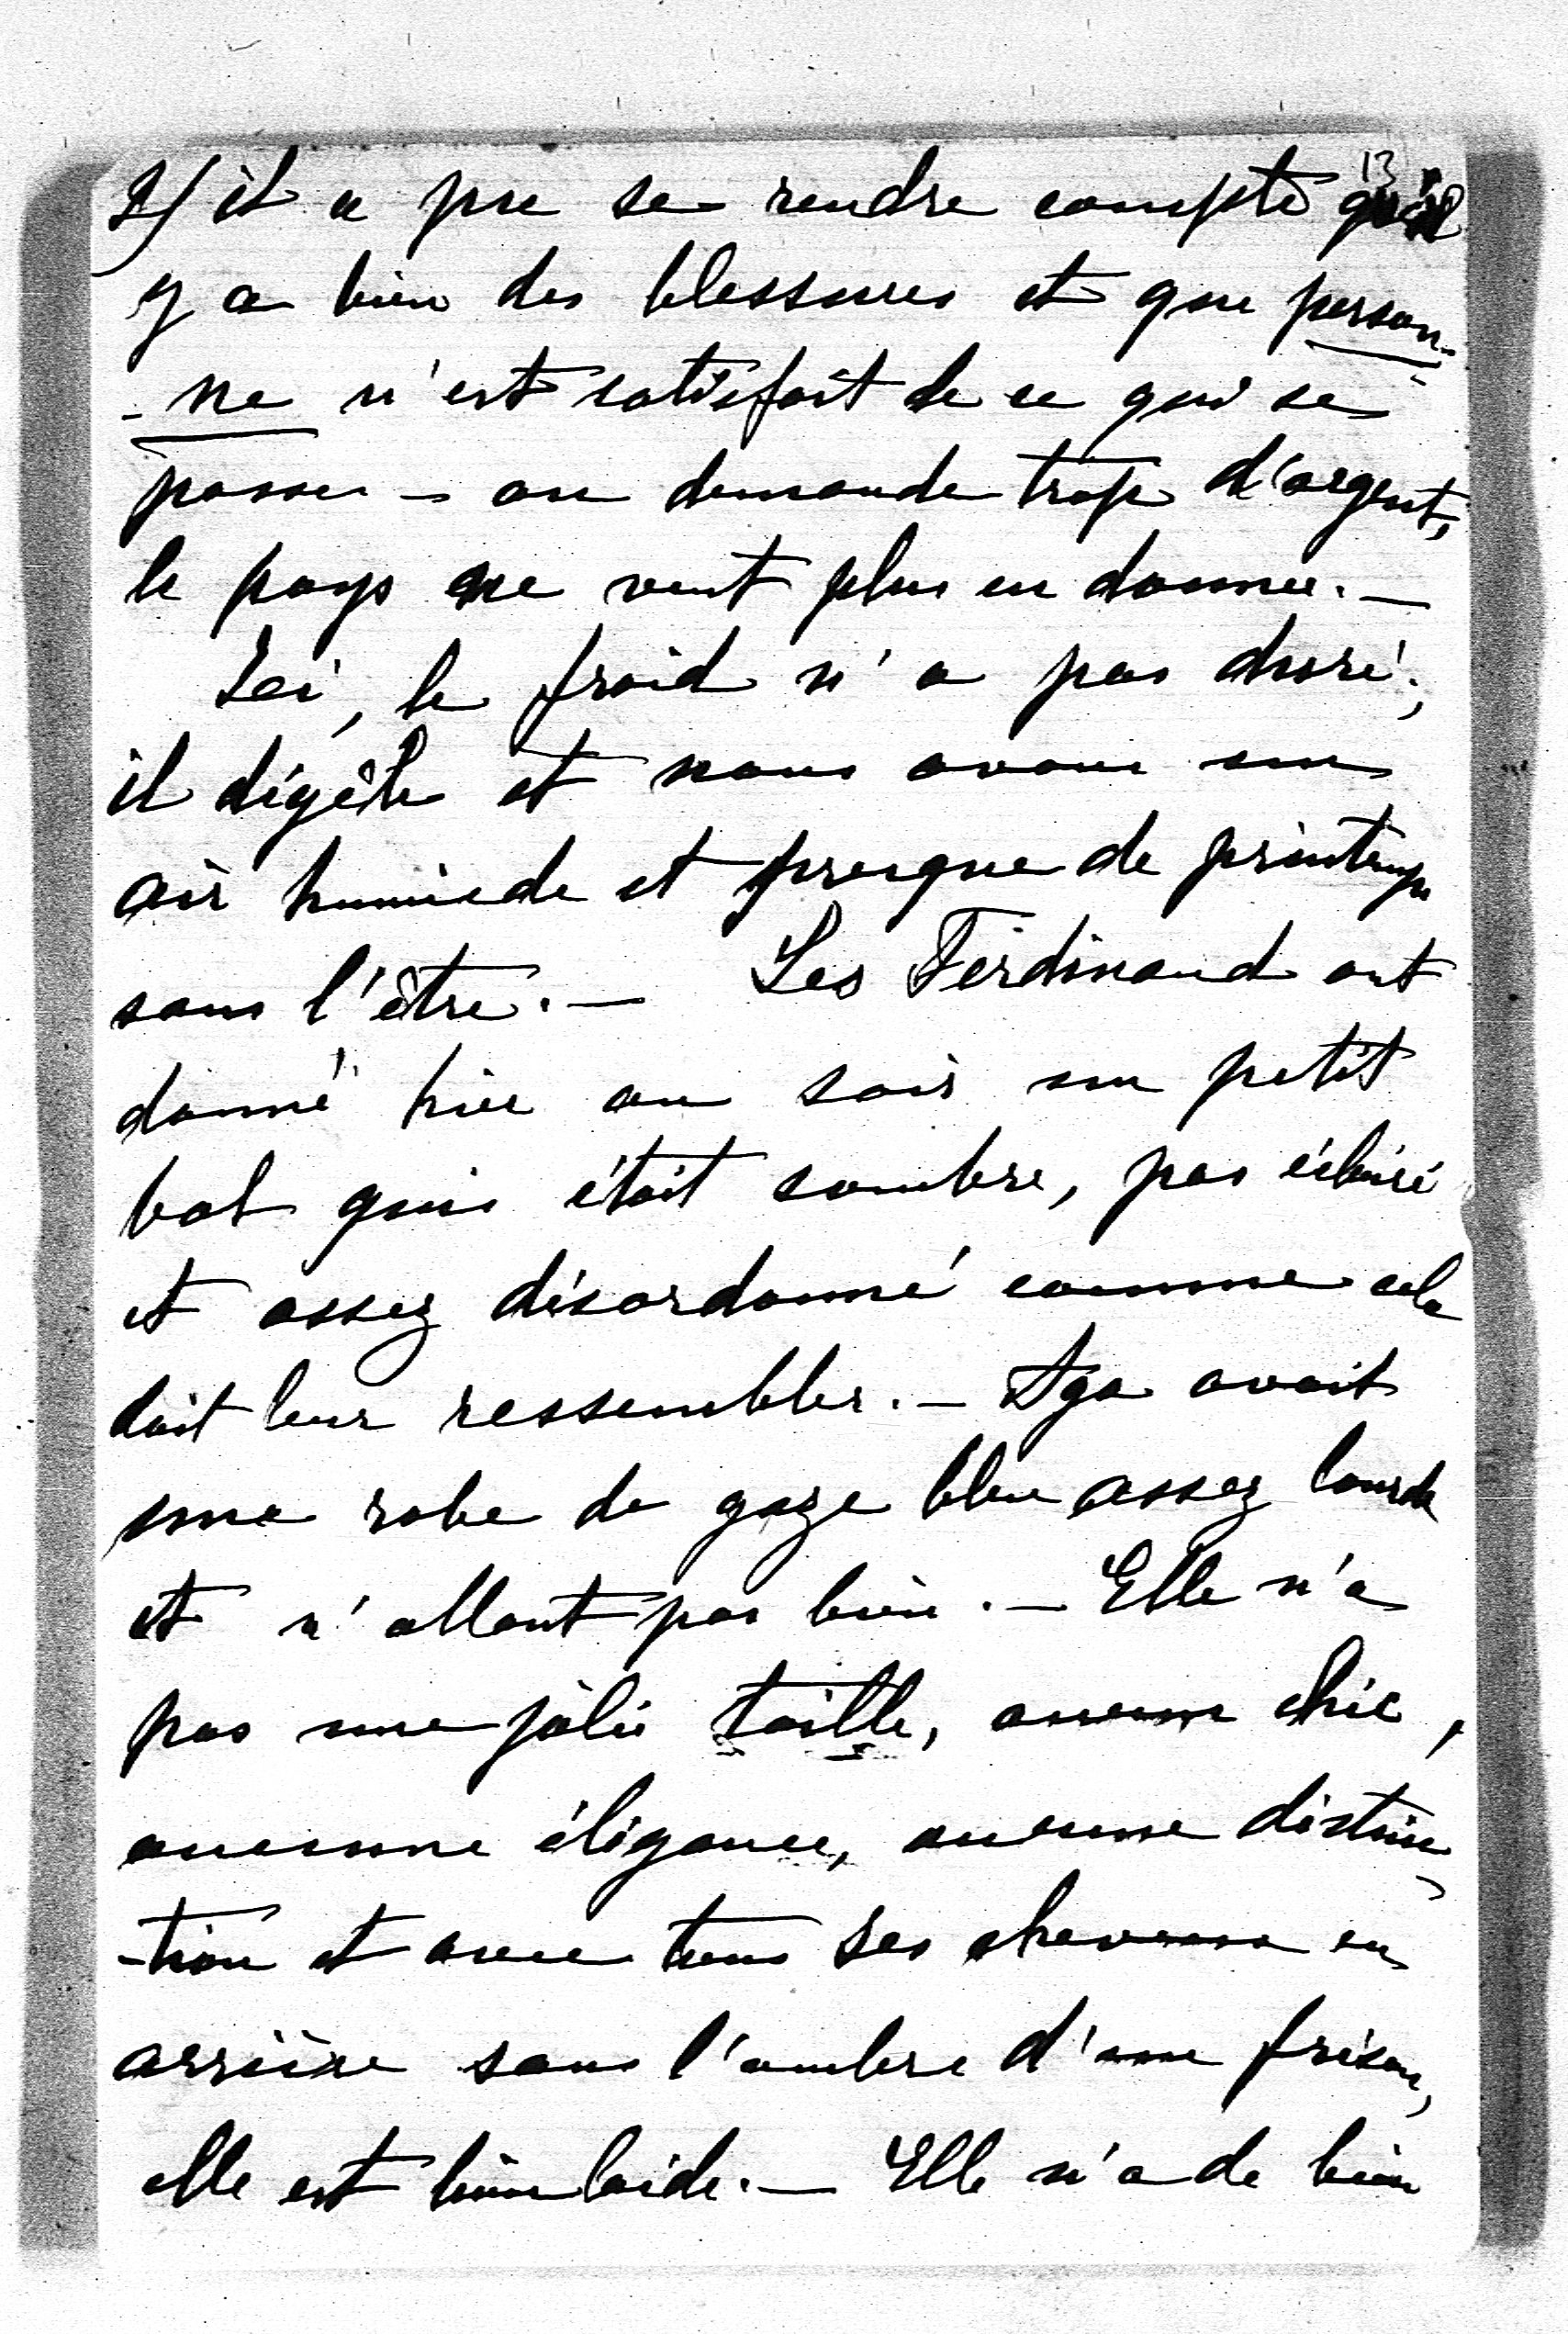 13
2/ il a pu se rendre compte qu'il
y a bien des blessures et que person-
-ne n'est satisfait de ce qui se
passe – on demande trop d'argent,
le pays ne veut plus en donner. –
Ici, le froid n'a pas duré;
il dégèle et nous avons un
air humide et presque de printemps
sans l'être. – Les Ferdinand ont
donné hier au soir un petit
bal qui était sombre, pas éclairé
et assez désordonné comme cela
doit leur ressembler. – Aga avait
une robe de gaze bleue assez lourde
et n'allant pas bien. – Elle n'a
pas une jolie taille, aucun chic,
aucune élégance, aucune distinc-
-tion et avec tous ses cheveux en
arrière sans l'ombre d'une frison,
elle est bien laide. – Elle n'a de bien